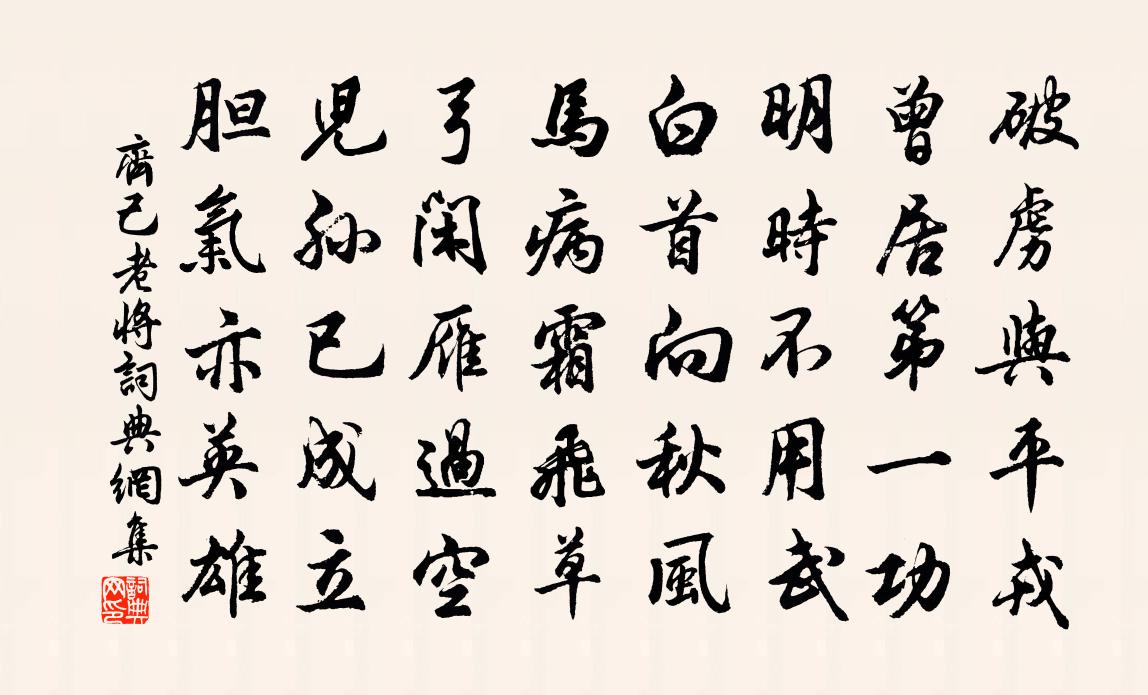 破虜與平戎
曾居第一功
明時不用武
白首向秋風
馬病霜飛草
弓閑雁過空
兒孫已成立
胆氣亦英雄
齊己老將詞典網集
詞典网印